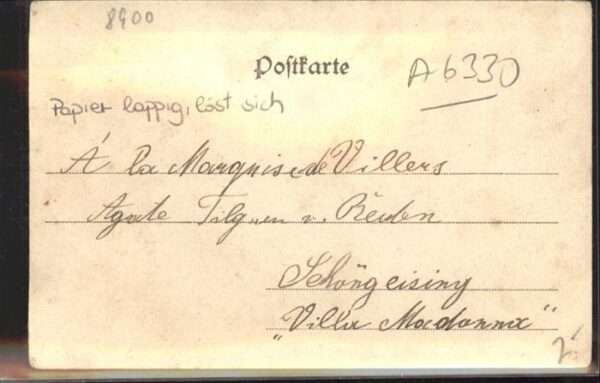 8900
Postkarte
A6330
Papier lappig, löst sich
Á la Marquise de Villers
Agate v.
Schöngeising
"Villa Madonna"